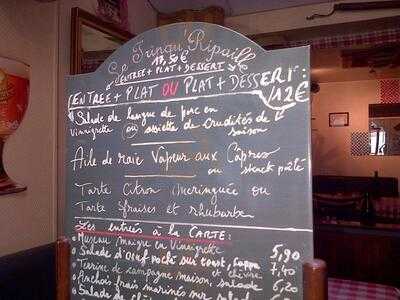 Le Trinqu'Ripaille
13,50€
(ENTREE + PLAT + DESSERT)
ENTREE + PLAT OU PLAT + DESSERT :
12€
Salade de langue de porc en
Vinaigrette ou assiette de crudités de
saison
Aile de raie Vapeur aux Câpres
ou steack pâté
Tarte Citron Meringuée ou
Tarte fraises et rhubarbe
Les entrées à la CARTE :
Museau maison en Vinaigrette 5,90
Salade d'oeuf poché sur toast, 7,40
Terrine de campagne maison, et chèvre
Anchois frais marinés sur salade 6,20
Salade de